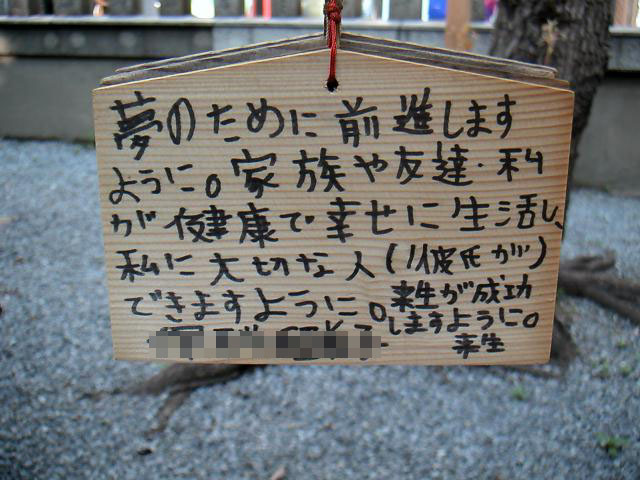 夢のために前進します
ように。家族や友達・私
が健康で幸せに生活し、
私に大切な人(彼氏が)
できますように。
来生が成功
しますように。
来生